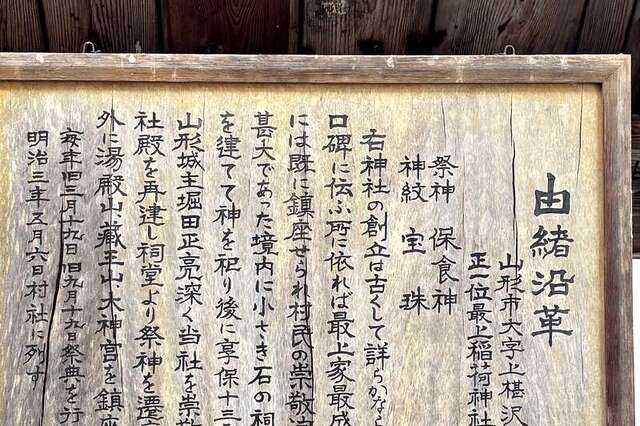 由緒沿革
山形市大字上椹沢
正一位最上稲荷神社
祭神 保食神
神紋 宝珠
右神社の創立は古くして詳らかなら
口碑に伝ふ所に依れば最上家最盛
には既に鎮座せられ村民の崇敬
甚大であった境内に小さき石の祠
を建てて神を祀り後に享保十三
山形城主堀田正亮深く当社を崇敬
社殿を再建し祠堂より祭神を遷
外に湯殿山、蔵王山、大神宮を鎮座
毎年旧三月十九日旧九月十九日祭典を行
明治三年五月六日村社に列す